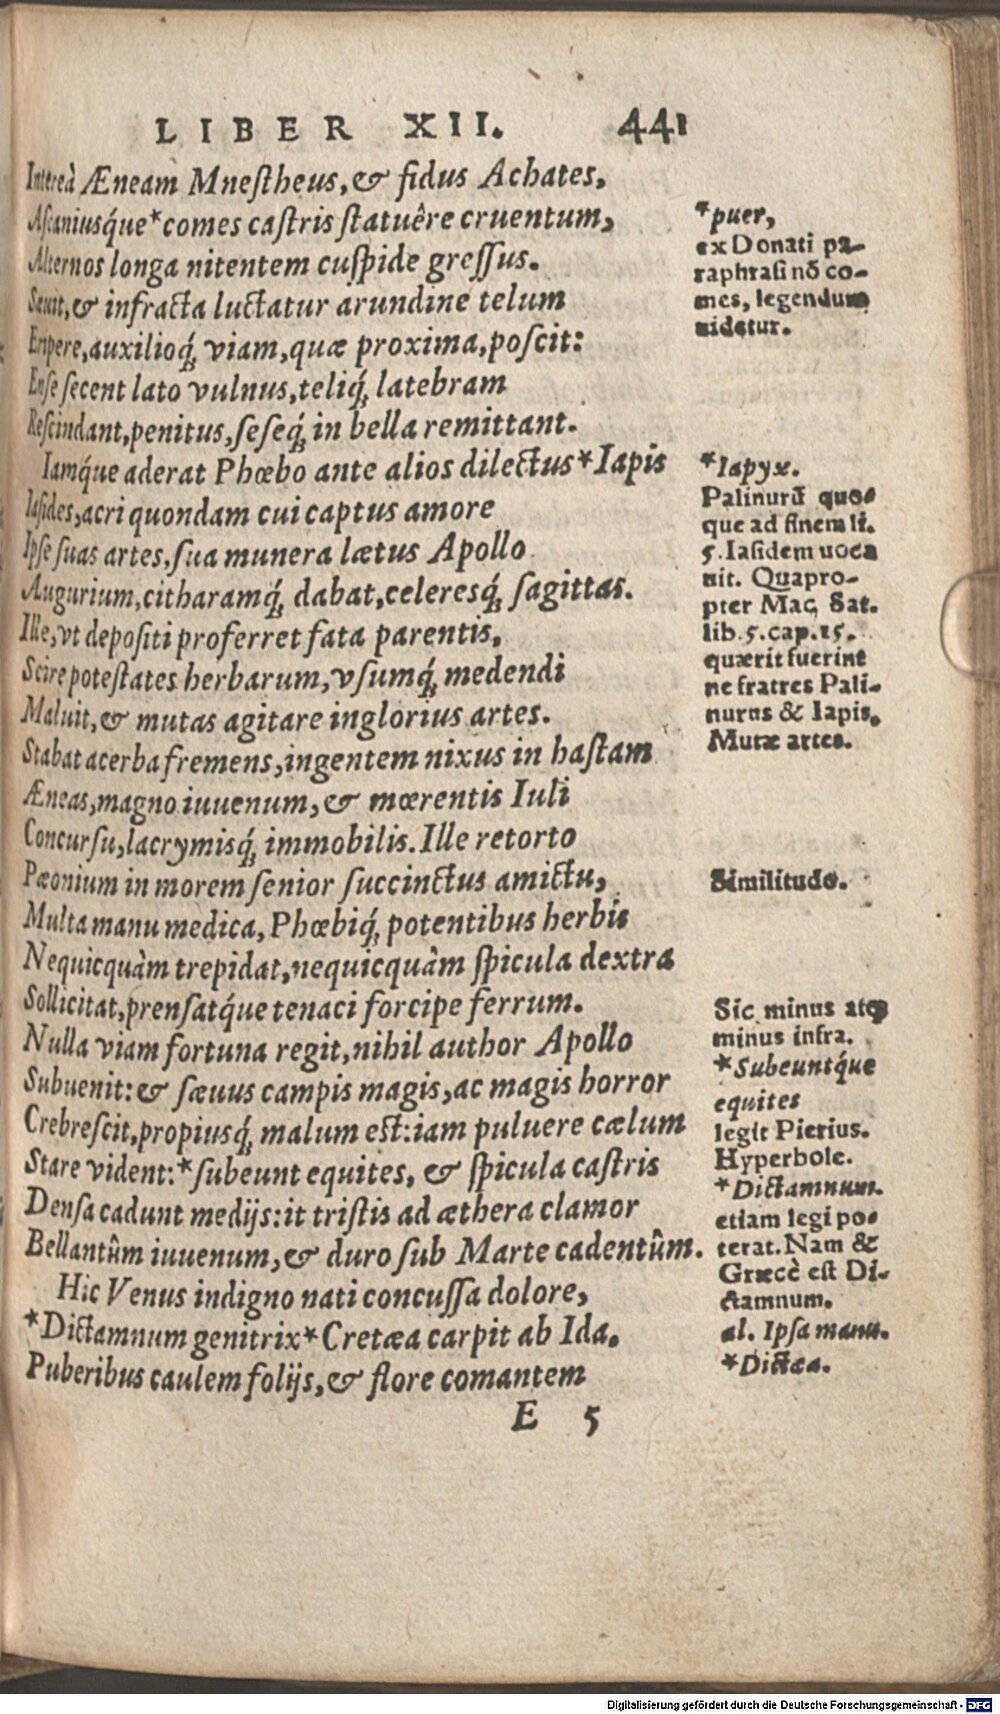 LIBER XII. 441
Intereà Æneam Mnestheus, & fidus Achates,
Ascaniusq́ue*comes castris statuêre cruentum,
Alternos longa nitentem cuspide gressus.
Sæuit, & infracta luctatur arundine telum
Eripere, auxilioq́; viam, quæ proxima, poscit:
Ense secent lato vulnus, teliq́; latebram
Rescindant, penitus, seseq́; in bella remittant.
Iamq́ue aderat Phœbo ante alios dilectus*Iapis
Iasides, acri quondam cui captus amore
Ipse suas artes, sua munera lætus Apollo
Augurium, citharamq́; dabat, celeresq́; sagittas.
Ille, vt depositi proferret fata parentis,
Scire potestates herbarum, vsumq́; medendi
Maluit, & mutas agitare inglorius artes.
Stabat acerba fremens, ingentem nixus in hastam
Æneas, magno iuuenum, & mœrentis Iuli
Concursu, lacrymisq́; immobilis. Ille retorto
Pæonium in morem senior succinctus amictu,
Multa manu medica, Phœbiq́; potentibus herbis
Nequicquàm trepidat, nequicquàm spicula dextra
Sollicitat, prensatq́ue tenaci forcipe ferrum.
Nulla viam fortuna regit, nihil author Apollo
Subuenit: & sæuus campis magis, ac magis horror
Crebrescit, propiusq́; malum est: iam puluere cælum
Stare vident:*subeunt equites, & spicula castris
Densa cadunt medijs: it tristis ad æthera clamor
Bellantûm iuuenum, & duro sub Marte cadentûm.
Hic Venus indigno nati concussa dolore,
*Dictamnum genitrix*Cretæa carpit ab Ida.
Puberibus caulem folijs, & flore comantem
E 5
*puer,
ex Donati pa-
raphrasi nō co-
mes, legendum
uidetur.
*Iapyx.
Palinurū quo-
que ad finem li.
5. Iasidem uoca
uit. Quapro-
pter Mac. Sat.
lib. 5. cap. 15.
quærit fuerint
ne fratres Pali-
nurus & Iapis.
Mutæ artes.
Similitudo.
Sic minus atq;
minus infra.
*Subeuntq́ue
equites
legit Pierius.
Hyperbole.
*Dictamnum.
etiam legi po-
terat. Nam &
Græcè est Di-
ctamnum.
al. Ipsa manu.
*Dictæa.
Digitalisierung gefördert durch die Deutsche Forschungsgemeinschaft - DFG